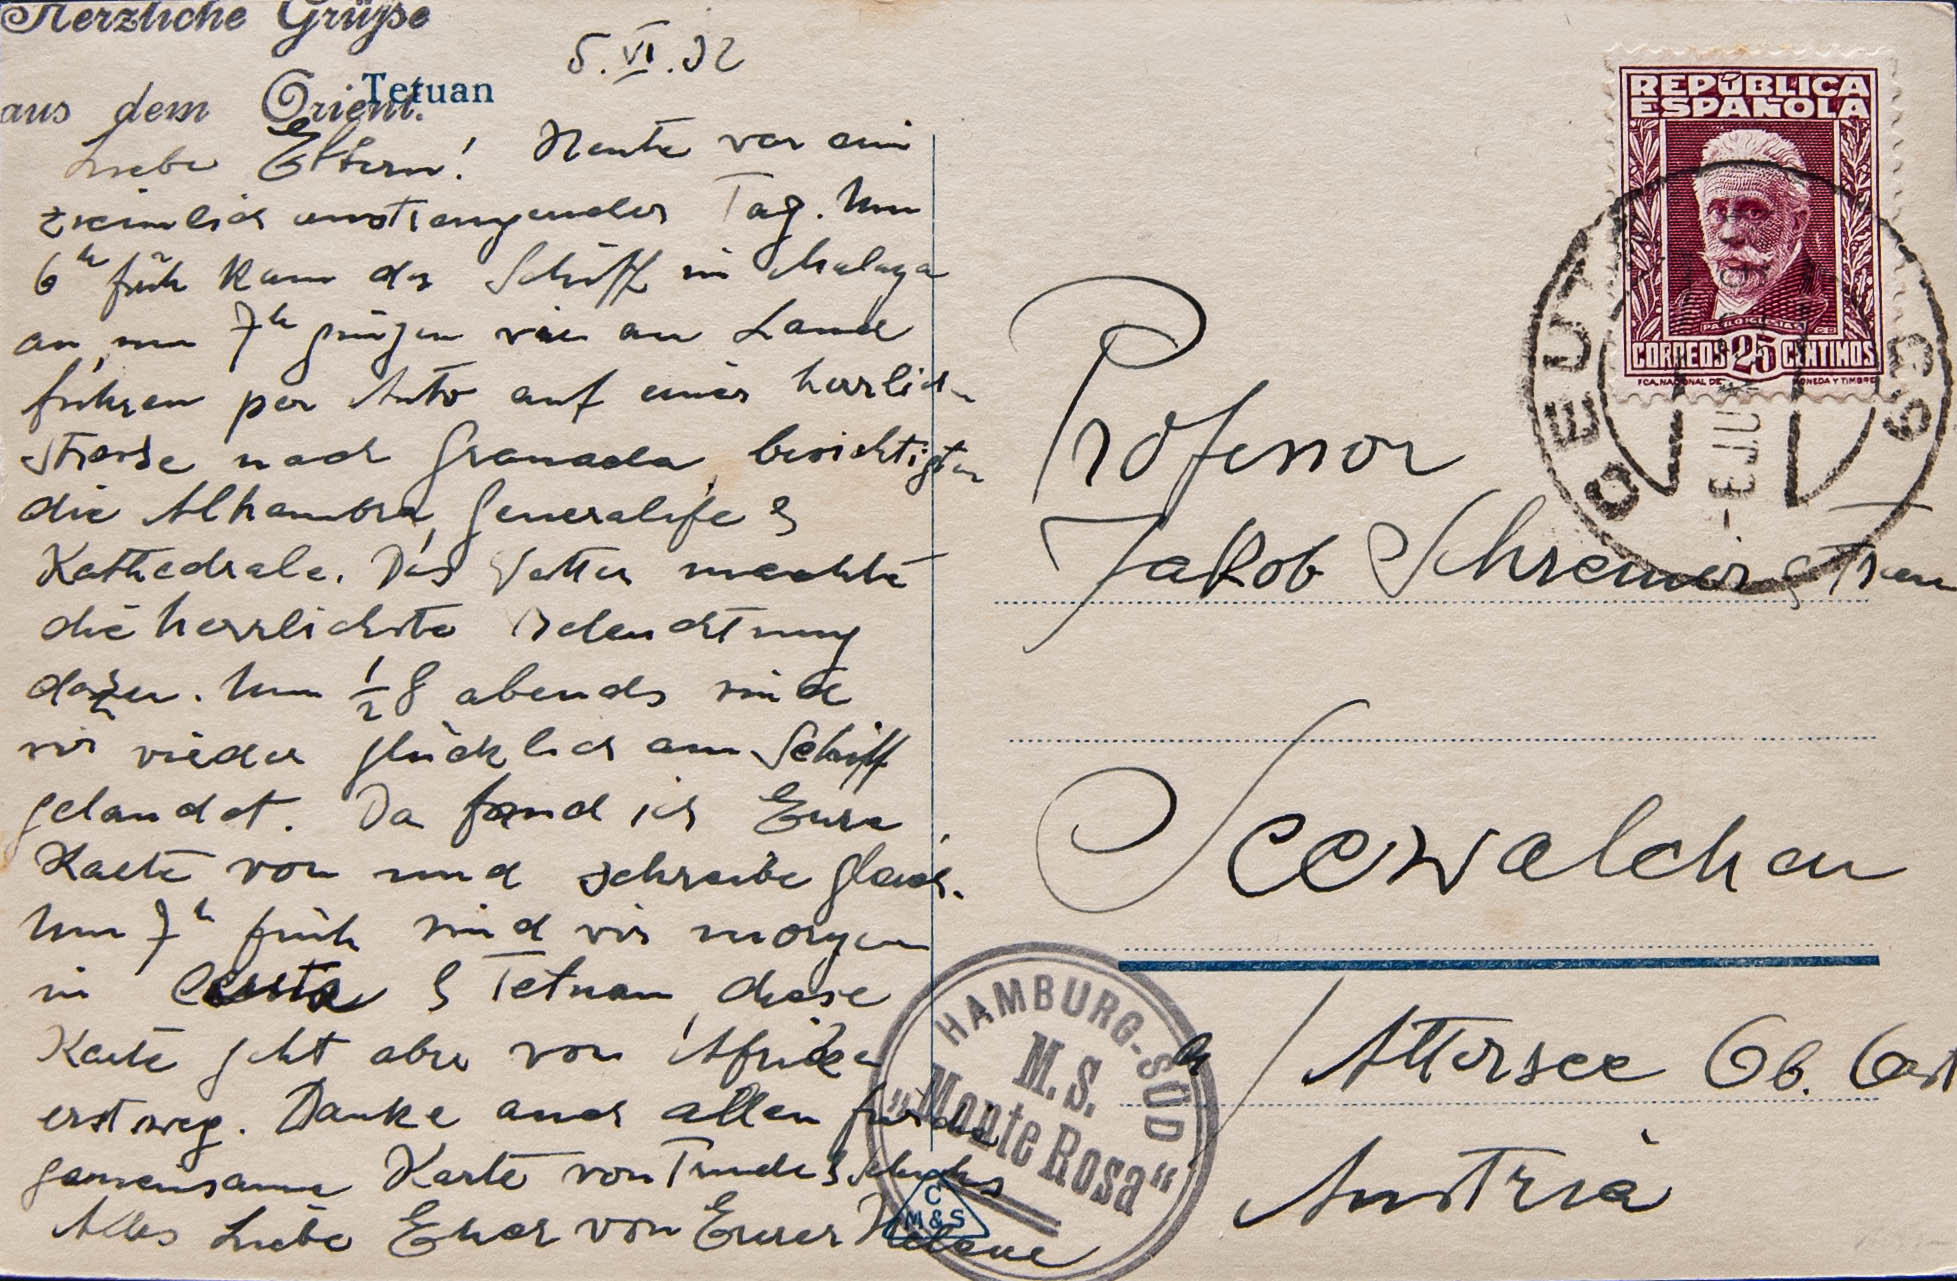 Herzliche Grüße
aus dem Orient.
Tetuan
5.VI.32
Liebe Eltern! Heute war ein
ziemlich anstrengender Tag. Um
6h früh kam das Schiff in Malaga
an, um 7h gingen wir an Land
fuhren per Auto auf einer herrlich.
Strasse nach Granada, besichtigten
die Alhambra, Generalife &
Kathedrale. Das Wetter machte
die herrlichste Beleuchtung
dazu. Um ½8 abends sind
wir wieder glücklich am Schiff
gelandet. Da fand ich Eure
Karte vor und schreibe gleich.
Um 7h früh sind wir morgen
in Ceuta & Tetuan, diese
Karte geht aber von Afrika
erst weg. Danke auch allen für die
gemeinsame Karte von Trude &
Alles Liebe Euch von Eurer Helene
REPÚBLICA
ESPAÑOLA
PABLO IGLESIAS
CORREOS 25 CENTIMOS
FCA. NACIONAL DE MONEDA Y TIMBRE
CEUTA
-6 JUN
Professor
Jakob Schreiner & Frau
Seewalchen
a/Attersee Ob. Oest
Austria
HAMBURG-SÜD
M.S.
„Monte Rosa“
C
M&S